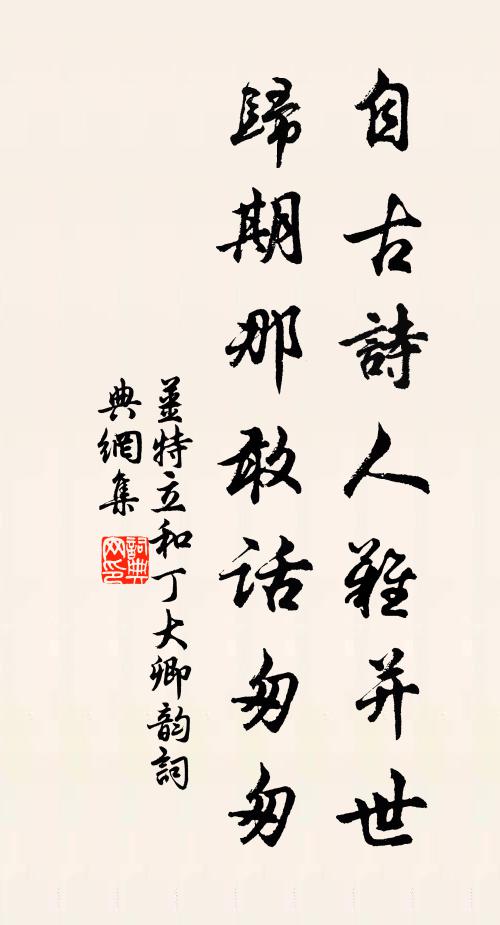 自古詩人難并世
歸期那敢話匆匆
姜特立和丁大卿韵詞
典網集
詞典
网印